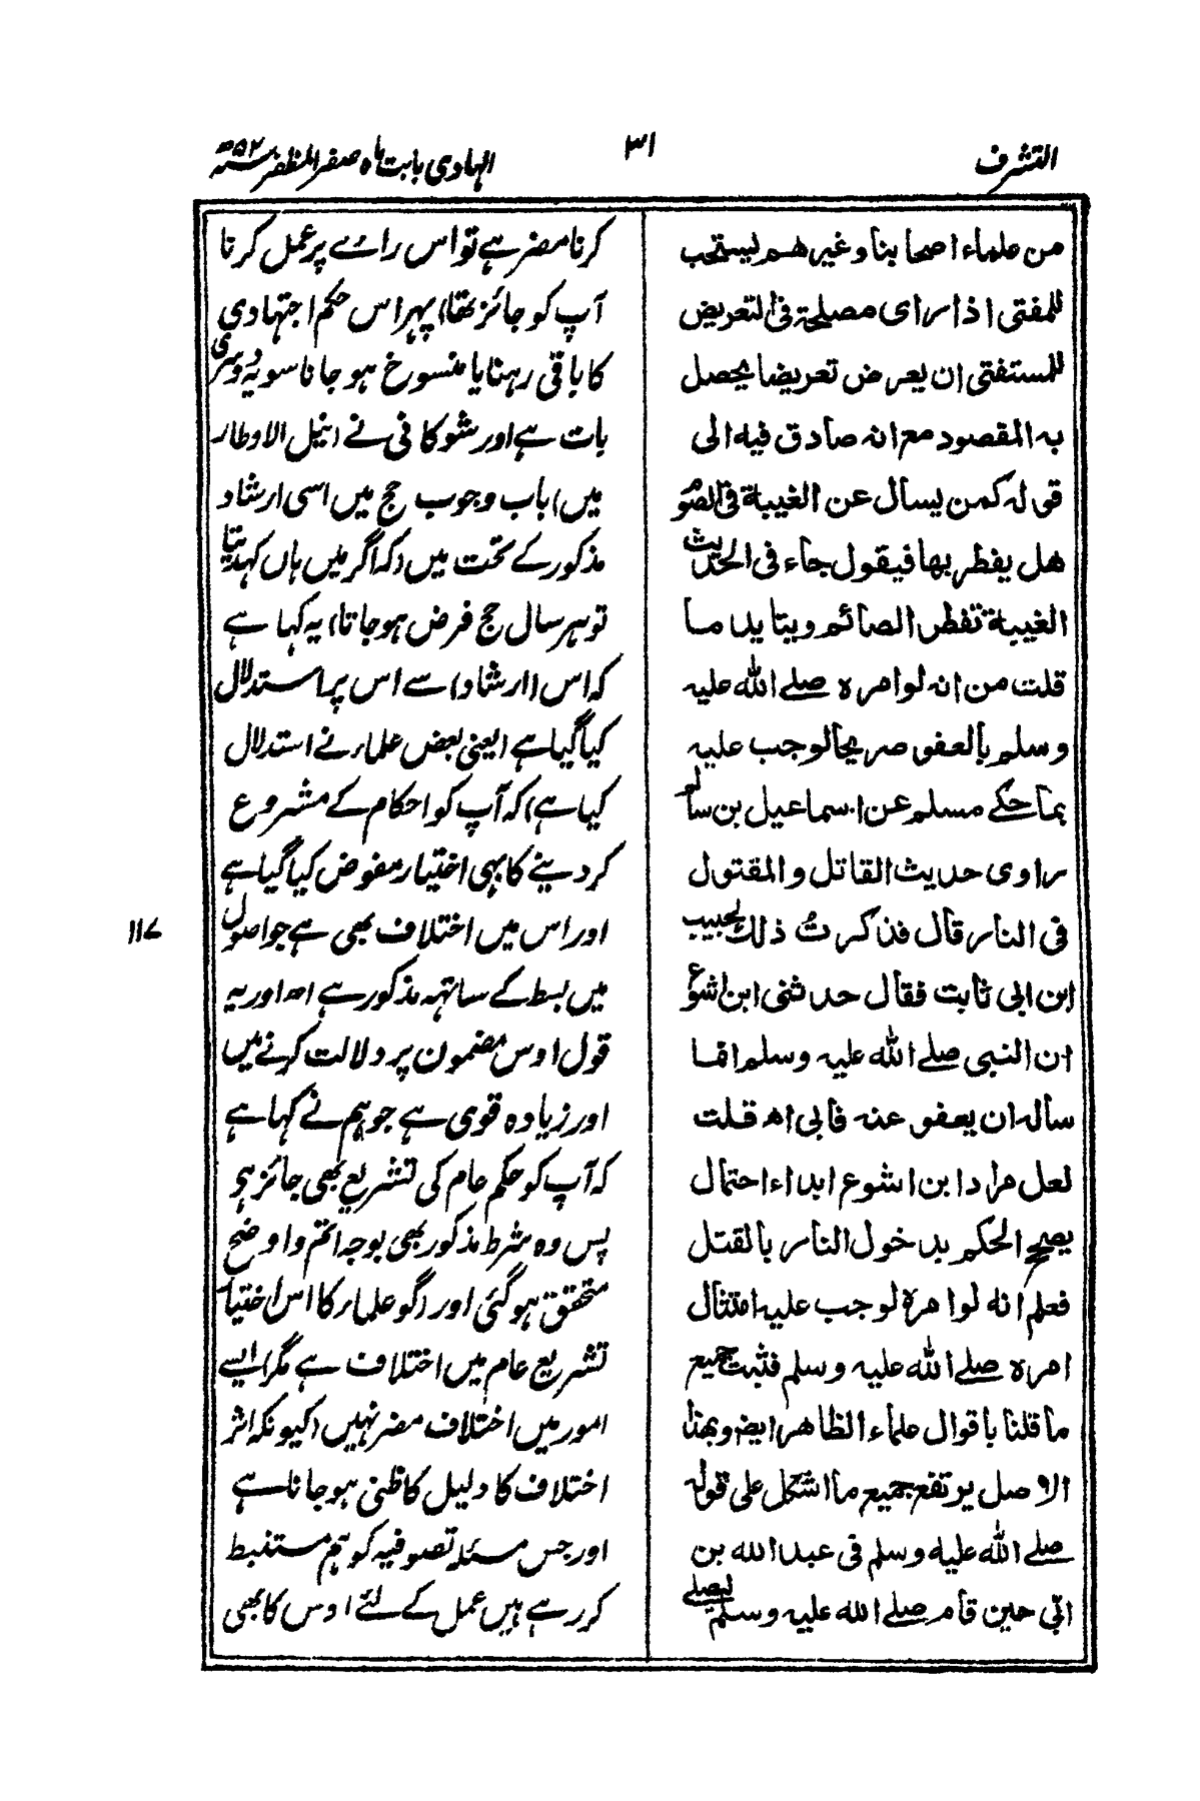 التشرف
۳۱
الہادی بابت ماہ صفر المظفر ۵۲ھ
من علماء اصحابنا وغیرھم یستحب
للمفتی اذا رای مصلحۃ فی التعریض
للمستفتی ان یعرض تعریضا یحصل
بہ المقصود مع انہ صادق فیہ الی
قولہ کمن یسأل عن الغیبۃ فی الصوم
ھل یفطر بھا فیقول جاء فی الحدیث
الغیبۃ تفطر الصائم ویتاید ما
قلت من انہ لو امرہ صلے اللہ علیہ
وسلم بالعفو صریحا لوجب علیہ
بما حکے مسلم عن اسماعیل بن سالم
راوی حدیث القاتل والمقتول
فی النار قال فذکرتُ ذلک لحبیب
ابن ابی ثابت فقال حدثنی ابن اشوع
ان النبی صلے اللہ علیہ وسلم انما
سألہ ان یعفو عنہ فابی اھ قلت
لعل مراد ابن اشوع ابداء احتمال
یصحح الحکم بدخول النار بالقتل
فعلم انہ لو امرہ لوجب علیہ امتثال
امرہ صلے اللہ علیہ وسلم فثبت جمیع
ما قلنا باقوال علماء الظاھر ایضا وبھذا
الاصل یرتفع جمیع ما اشکل علی قولہ
صلے اللہ علیہ وسلم فی عبد اللہ بن
ابی حین قام صلے اللہ علیہ وسلم لیصلے
کرنا مضر ہے تو اس رائے پر عمل کرنا
آپ کو جائز تھا) پہر اس حکم اجتہادی
کا باقی رہنا یا منسوخ ہو جانا سو یہ دوسری
بات ہے اور شوکافی نے (نیل الاوطار
میں) باب وجوب حج میں اسی ارشاد
مذکور کے تحت میں (کہ اگر میں ہاں کہدیتا
تو ہر سال حج فرض ہو جاتا) یہ کہا ہے
کہ اس (ارشاد) سے اس پر استدلال
کیا گیا ہے (یعنی بعض علماء نے استدلال
کیا ہے) کہ آپ کو احکام کے مشروع
کر دینے کا بہی اختیار مفوض کیا گیا ہے
اور اس میں اختلاف بھی ہے جو اصول
میں بسط کے ساتھ مذکور ہے اھ اور یہ
قول اوس مضمون پر دلالت کرنے میں
اور زیادہ قوی ہے جو ہم نے کہا ہے
کہ آپ کو حکم عام کی تشریع بھی جائز ہو
پس وہ شرط مذکور بھی بوجہ اتم و اوضح
متحقق ہو گئی اور (گو علماء کا اس اختیار
تشریع عام میں اختلاف ہے مگر) ایسے
امور میں اختلاف مضر نہیں (کیونکہ اثر
اختلاف کا دلیل کا ظنی ہو جانا ہے
اور جس مسئلہ تصوفیہ کو ہم مستنبط
کر رہے ہیں عمل کے لئے اوس کا بھی
۱۱۷